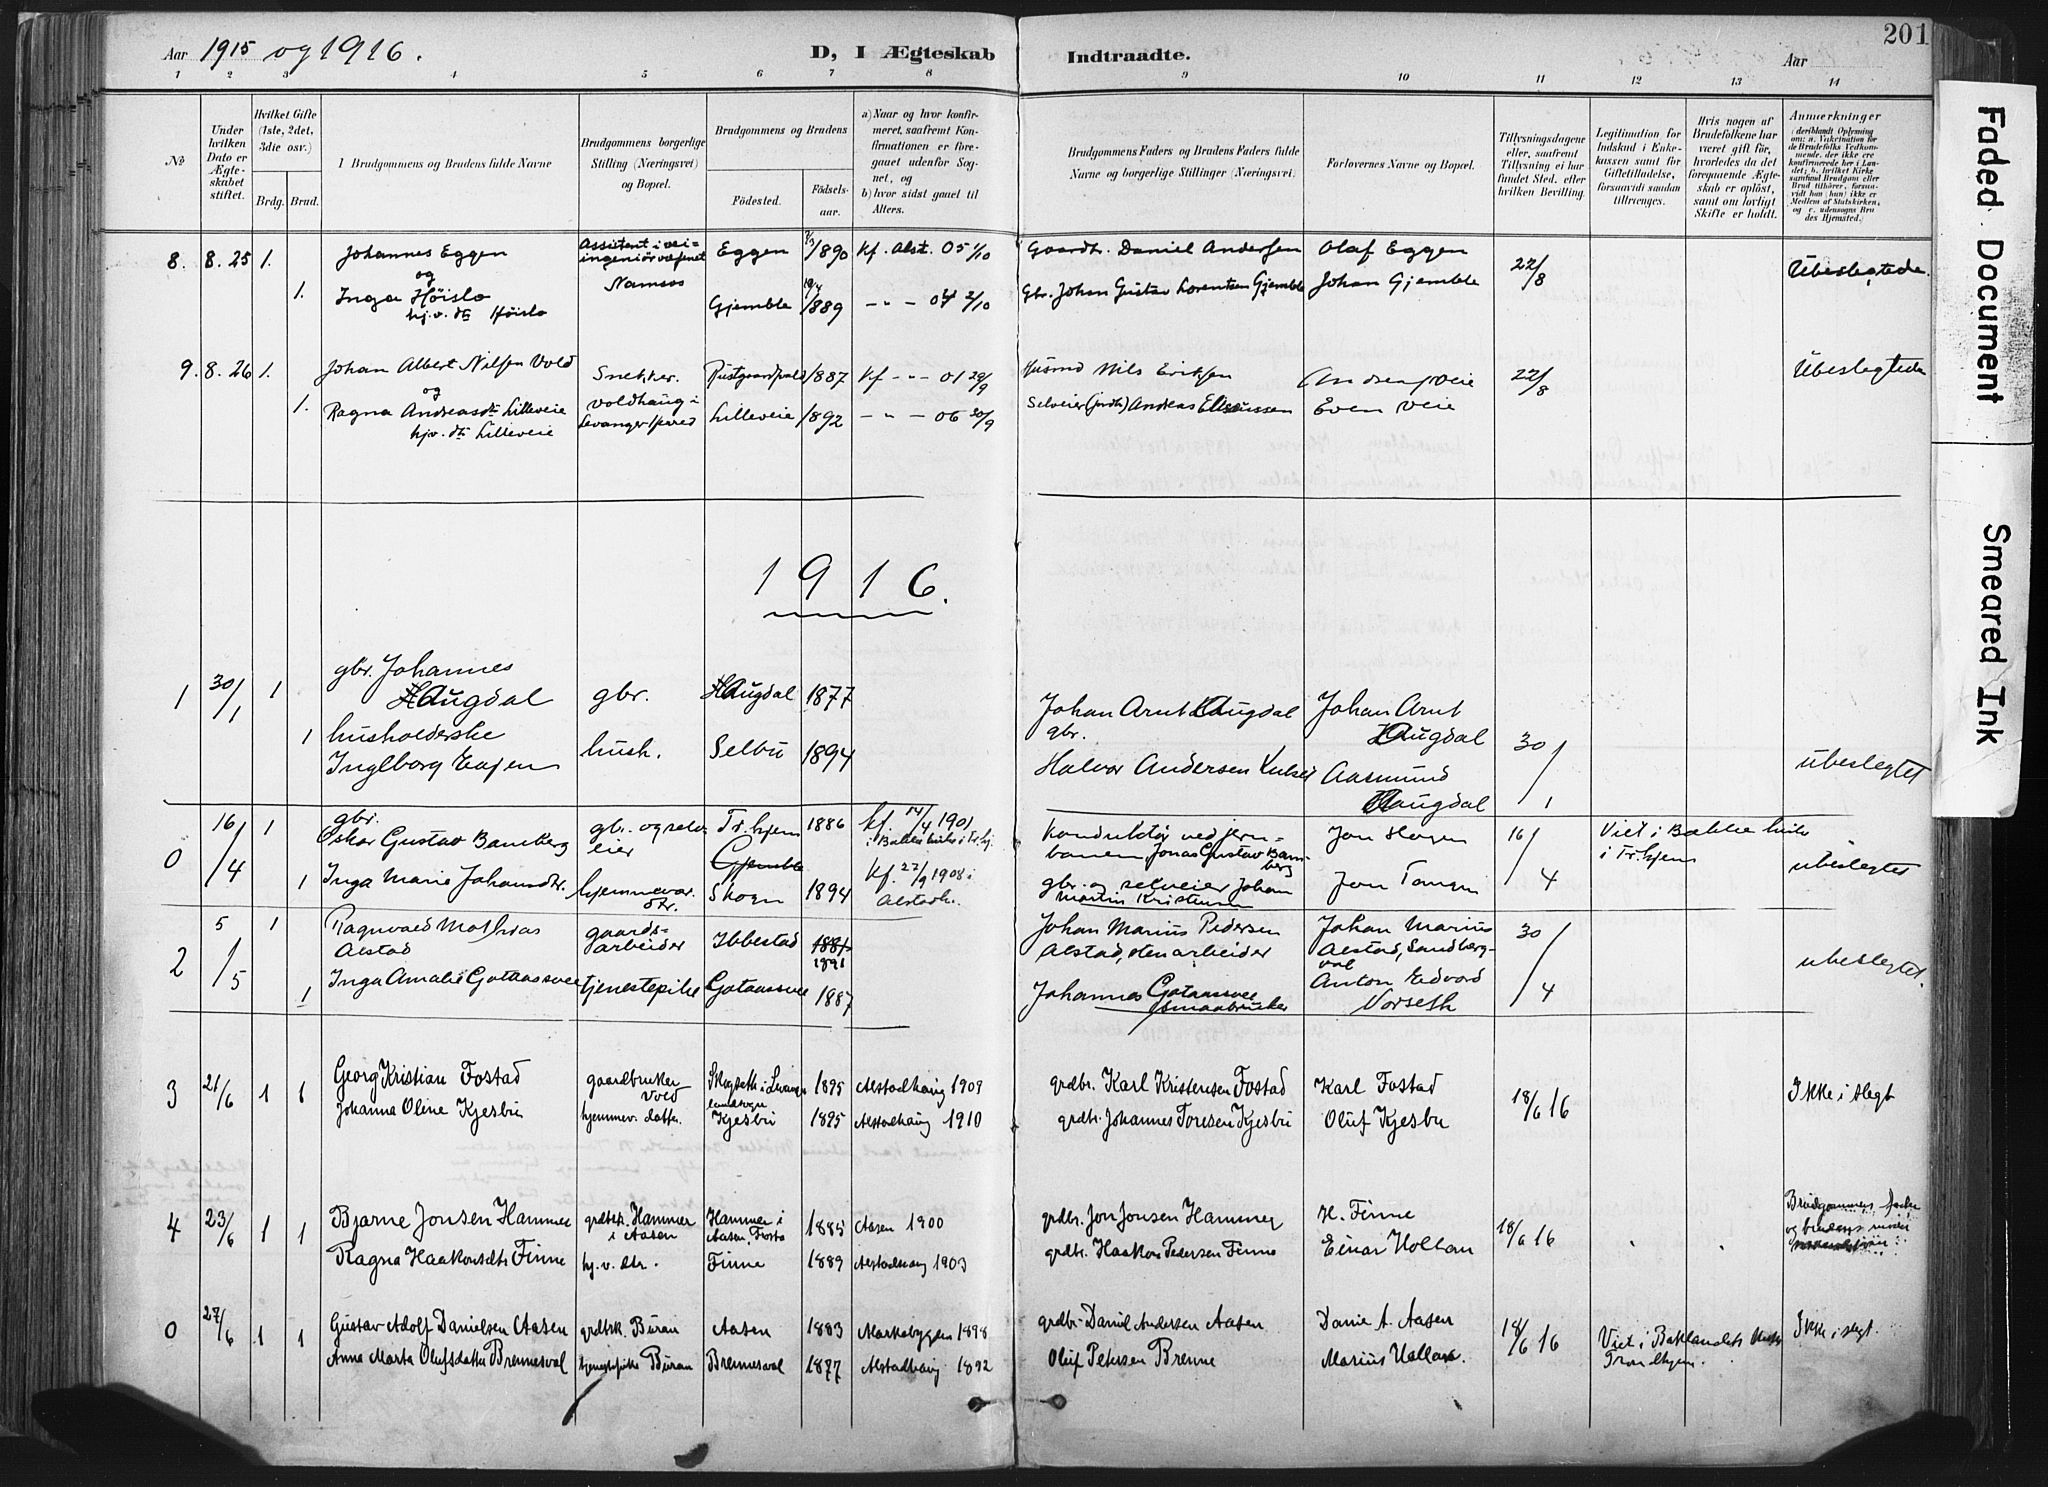 201
Aar 1915 og 1916. D, I Ægteskab Indtraadte. Aar
1 2 3 4 5 6 7 8 9 10 11 12 13 14
No
Under hvilken Dato er Ægteskabet stiftet.
Hvilket Gifte (1ste, 2det, 3die osv.)
Brdg. Brud.
1 Brudgommens og Brudens fulde Navne
Brudgommens borgerlige Stilling (Næringsvei) og Bopæl.
Brudgommens og Brudens
Fødested. Fødselsaar.
a) Naar og hvor konfirmeret, saafremt Konfirmationen er foregaaet udenfor Sognet, og
b) hvor sidst gaaet til Alters.
Brudgommens Faders og Brudens Faders fulde Navne og borgerlige Stillinger (Næringsvei).
Forlovernes Navne og Bopæl.
Tillysningsdagene eller, saafremt Tillysning ei har fundet Sted, efter hvilken Bevilling.
Legitimation for Indskud i Enkekassen samt for Giftetilladelse, forsaavidt saadan tiltrænges.
Hvis nogen af Brudefolkene har været gift før, hvorledes da det foregaaende Ægteskab er opløst, samt om lovligt Skifte er holdt.
Anmærkninger
8. 8. 25 1. Johannes Eggen Assistent i veiingeniørvæsenet Eggen 1890 Kf. Alst. 05 1/10 Gaardbr. Daniel Andersen Olaf Eggen 22/8 Ubeslegtede
og Namsos
1. Inga Höislo Gjemble 1889 - - 04 2/10 Gbr. Johan Gustav Lorentsen Gjemble Johan Gjemble
hj.v. dtr Höislo
9. 8. 26 1. Johan Albert Nilsen Vold Snekker. 1887 Kf - - 01 29/9 Husmd Nils Eriksen Veie 22/8 Ubeslegtede
og Voldhaug i
1. Ragna Andreasdtr Lilleveie Levanger herred Lilleveie 1892 - - 06 30/9 Selveier Andreas Ellevssen Even Veie
hjv. dtr Lilleveie
1916.
1 30/1 1 gbr. Johannes
Haugdal gbr. Haugdal 1877 Johan Arnt Haugdal Johan Arnt
1 husholderske gbr. Haugdal 30/1
Ingeborg hush. Selbu 1894 Halvor Andersen Aasmund ubeslegtet
Haugdal
0 16/4 1 gbr.
Oskar Gustav Bamberg gbr. og selveier Tr.hjem 1886 kf. 14/4 1901 i Bakke kirke i Tr.hj. Konduktør ved jernbanen Jonas Gustav Bamberg Jon Hagen 16/4 Viet i Bakke kirke i Tr.hjem ubeslegtet
Gjemble
1 Inga Marie Johansdtr. hjemmevær. dtr. Skogn 1894 Kf. 27/9 1908 i Alstadh. gbr. og selveier Johan Martin Kristensen Jon Tangen
2 5/5 1 Ragnvald Mathias
Alstad gaardsarbeider Ibbestad 1881 1891 Johan Marius Pedersen Alstad, stenarbeider Johan Marius Alstad, Sandbergval 30/4 ubeslegtet.
1 Inga Amalie Gotaasvee tjenestepike Gotaasvee 1887 Johannes Gotaasvee Smaabruker Anton Edvard Norseth
3 21/6 1 1 Georg Kristian Fostad gaardbruker Vold Skogseth i Levanger landsogn 1895 Alstadhaug 1909 grdbr. Karl Kristensen Fostad Karl Fostad 18/6 16 Ikke i slegt
Johanna Oline Kjesbu hjemmev. datter. Kjesbu 1895 Alstadhaug 1910 grdbr. Johannes Toresen Kjesbu Oluf Kjesbu
4 23/6 1 1 Bjarne Jonsen Hammer grdbr. Hammer i Aasen Hammer i Aasen, Fosta 1885 Aasen 1900 grdbr. Jon Jonsen Hammer H. Finne 18/6 16 Brudgommens
Ragna Haakonsdtr Finne hj. v. dtr. Finne 1889 Alstadhaug 1903 grdbr. Haakon Pedersen Finne Einar Holtan og brudens
0 27/6 1 1 Gustav Adolf Danielsen Aasen grdbk. Buran Aasen 1883 Markabygden 1898 grdbr. Daniel Andersen Aasen Daniel A. Aasen 18/6 16 Viet i Baklandets kirke Ikke i slegt.
Anna Marta Olufsdatter Brennesval tjenestpike Buran Brennesval 1877 Alstadhaug 1892 Oluf Petersen Brenne Marius Hallan. Trondhjem.
Faded Document
Smeared Ink